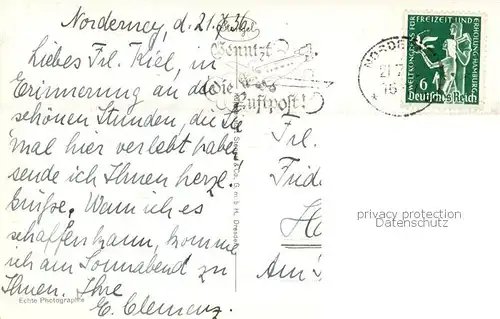 Norderney, d. 21.7.36
Liebes Frl. Kiel, in
Erinnerung an die
schönen Stunden, die Sie
mal hier verlebt haben
sende ich Ihnen herzl.
Grüße. Wann ich es
schaffen kann, komme
ich am Sonnabend zu
Ihnen. Ihre
E. Clemenz.
Echte Photographie
& Co. G. m. b. H. Dresden
Benutzt
Die
Luftpost!
NORDE
21.7
16
WELTKONGRESS FÜR FREIZEIT UND ERHOLUNG HAMBURG
6
Deutsches Reich
Frl.
Am
privacy protection
Datenschutz